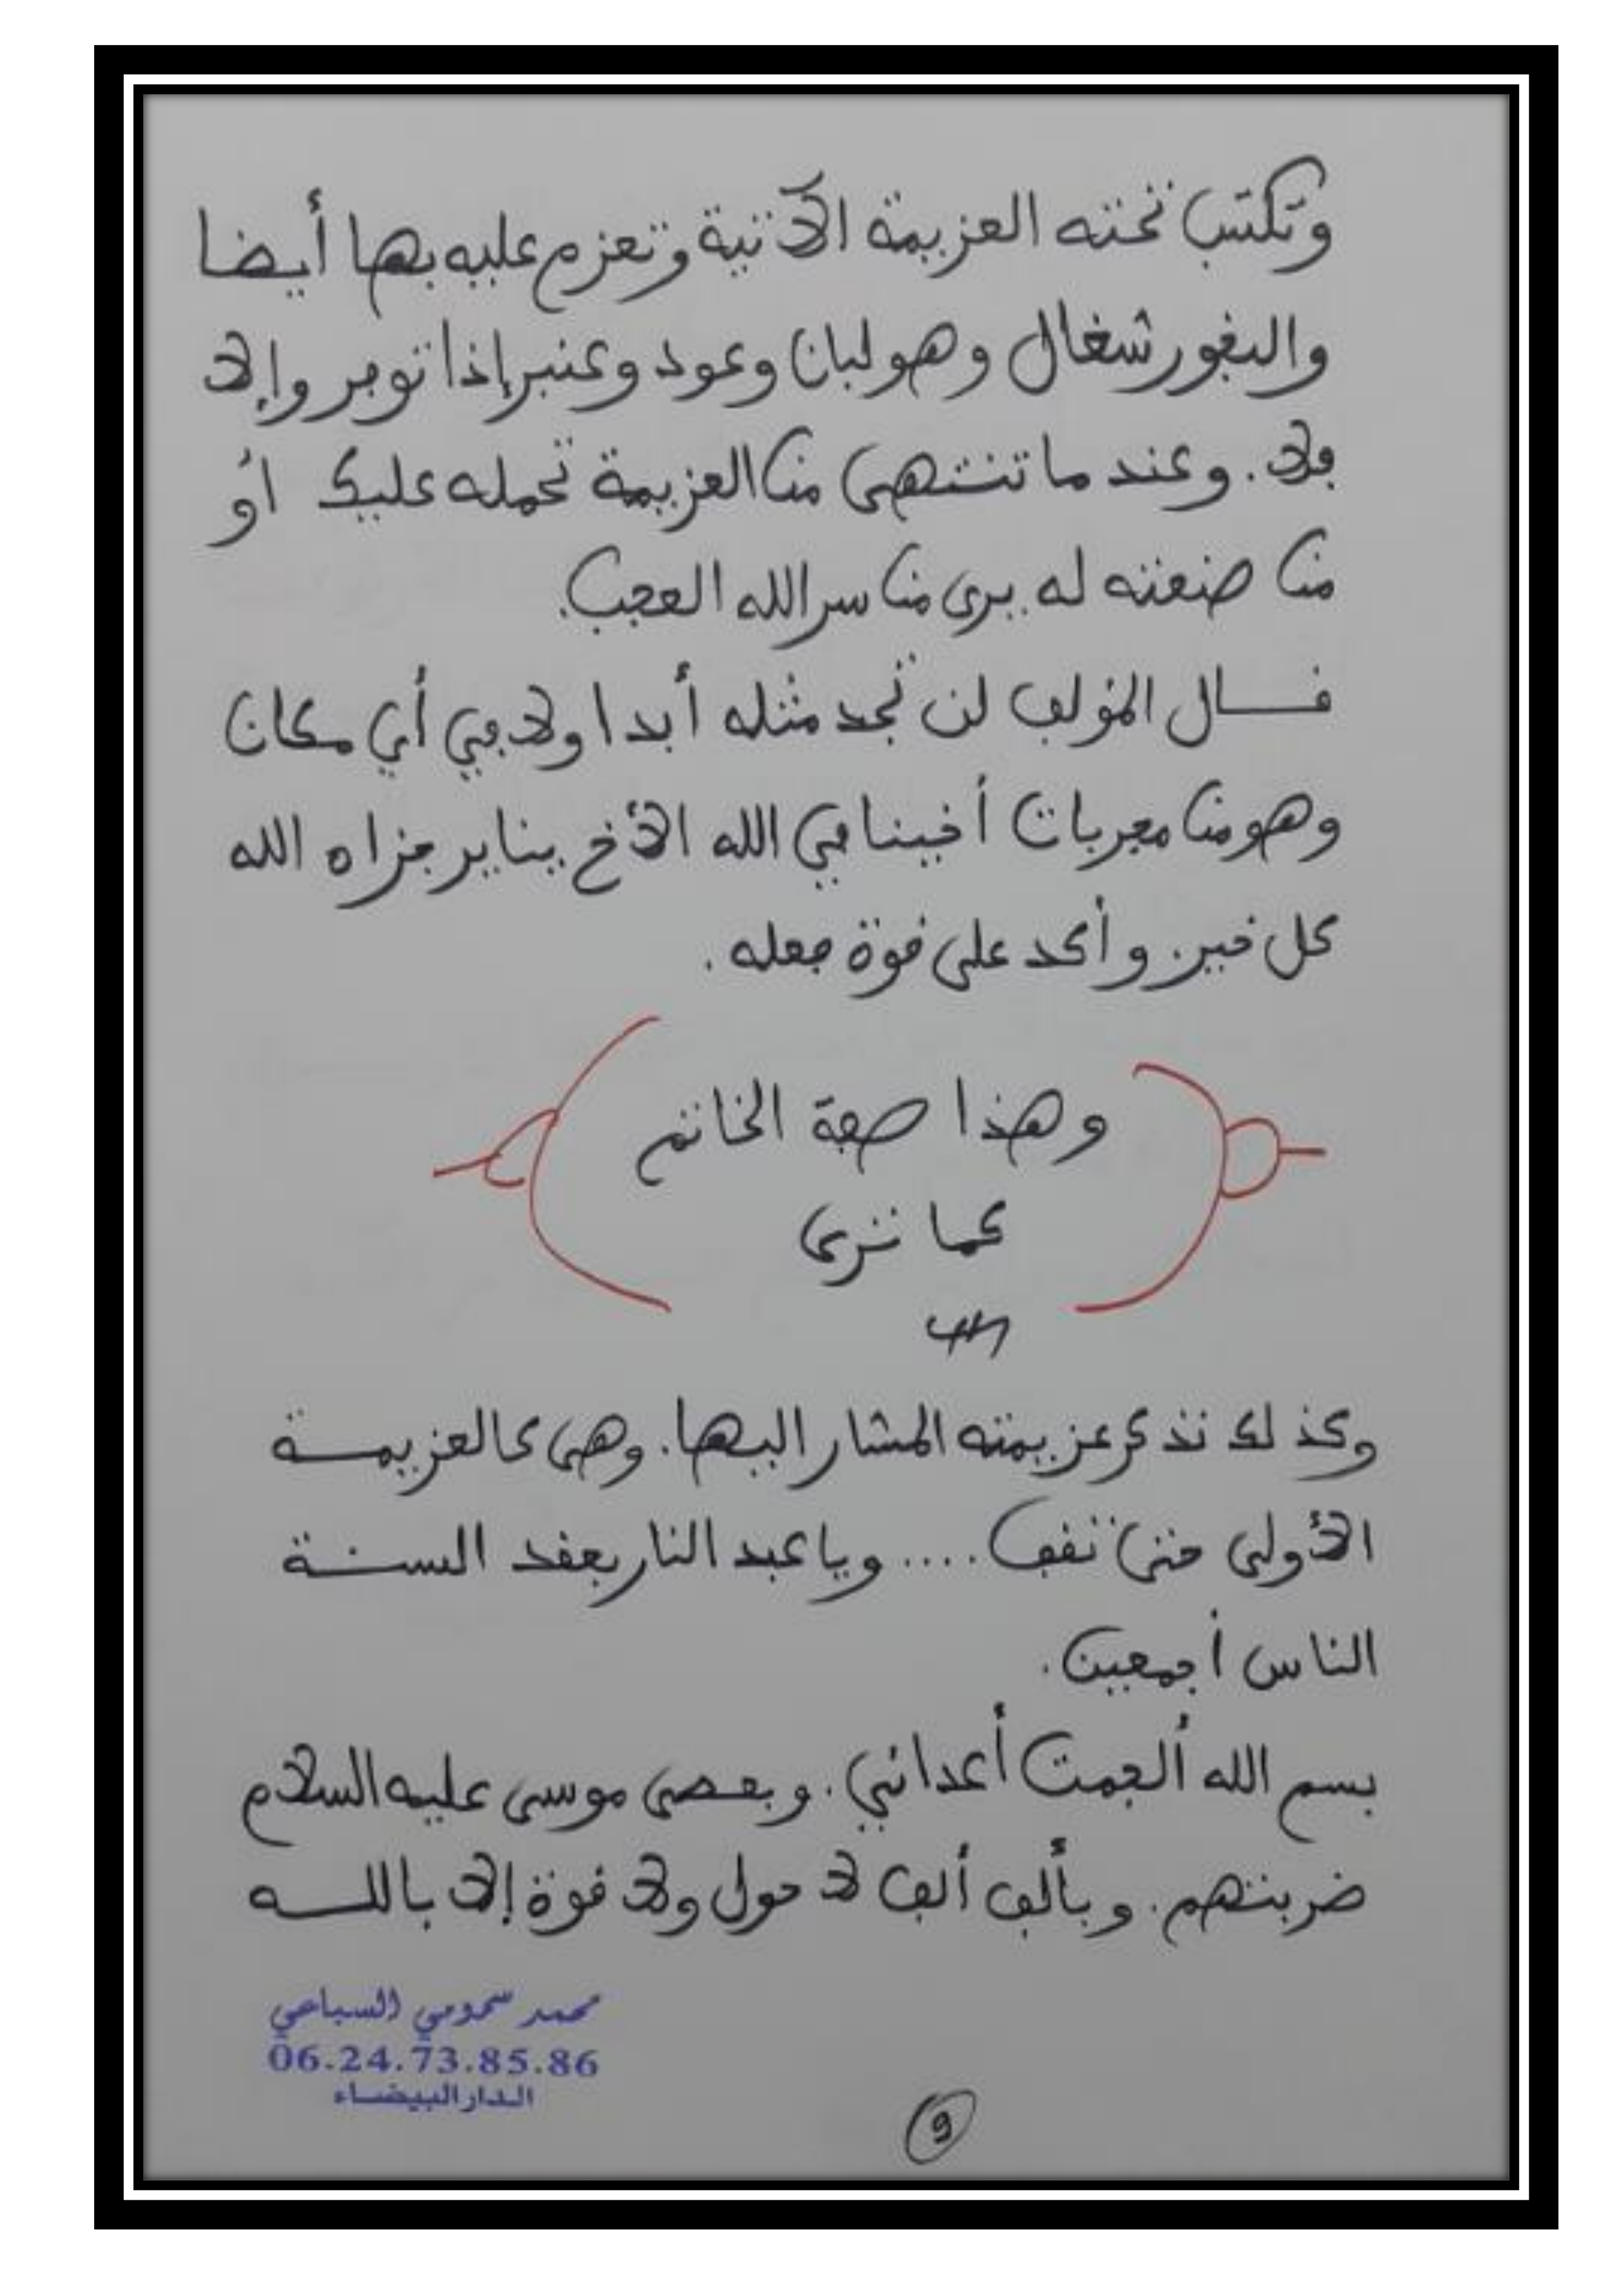 وتكتب تحته العزيمة الآتية وتعزم عليه بها أيضا
والبخور شغال وهو لبان وعود وعنبر إذا توفر وإلا
فلا. وعند ما تنتهي من العزيمة تحمله عليك أو
من صنعته له يرى من سر الله العجب.
قال المؤلف لن تجد مثله أبدا ولا في أي مكان
وهو من مجربات أخينا في الله الأخ يناير جزاه الله
كل خير. وأكد على قوة فعله.
وهذا صفة الخاتم
كما ترى
وكذلك نذكر عزيمته المشار اليها. وهي كالعزيمة
الأولى حتى تقف .... ويا عبد النار بعقد السنة
الناس أجمعين.
بسم الله ألجمت أعدائي. وبعصى موسى عليه السلام
ضربتهم. وبألف ألف لا حول ولا قوة إلا بالله
محمد سحومي السباعي
06.24.73.85.86
الدار البيضاء
9